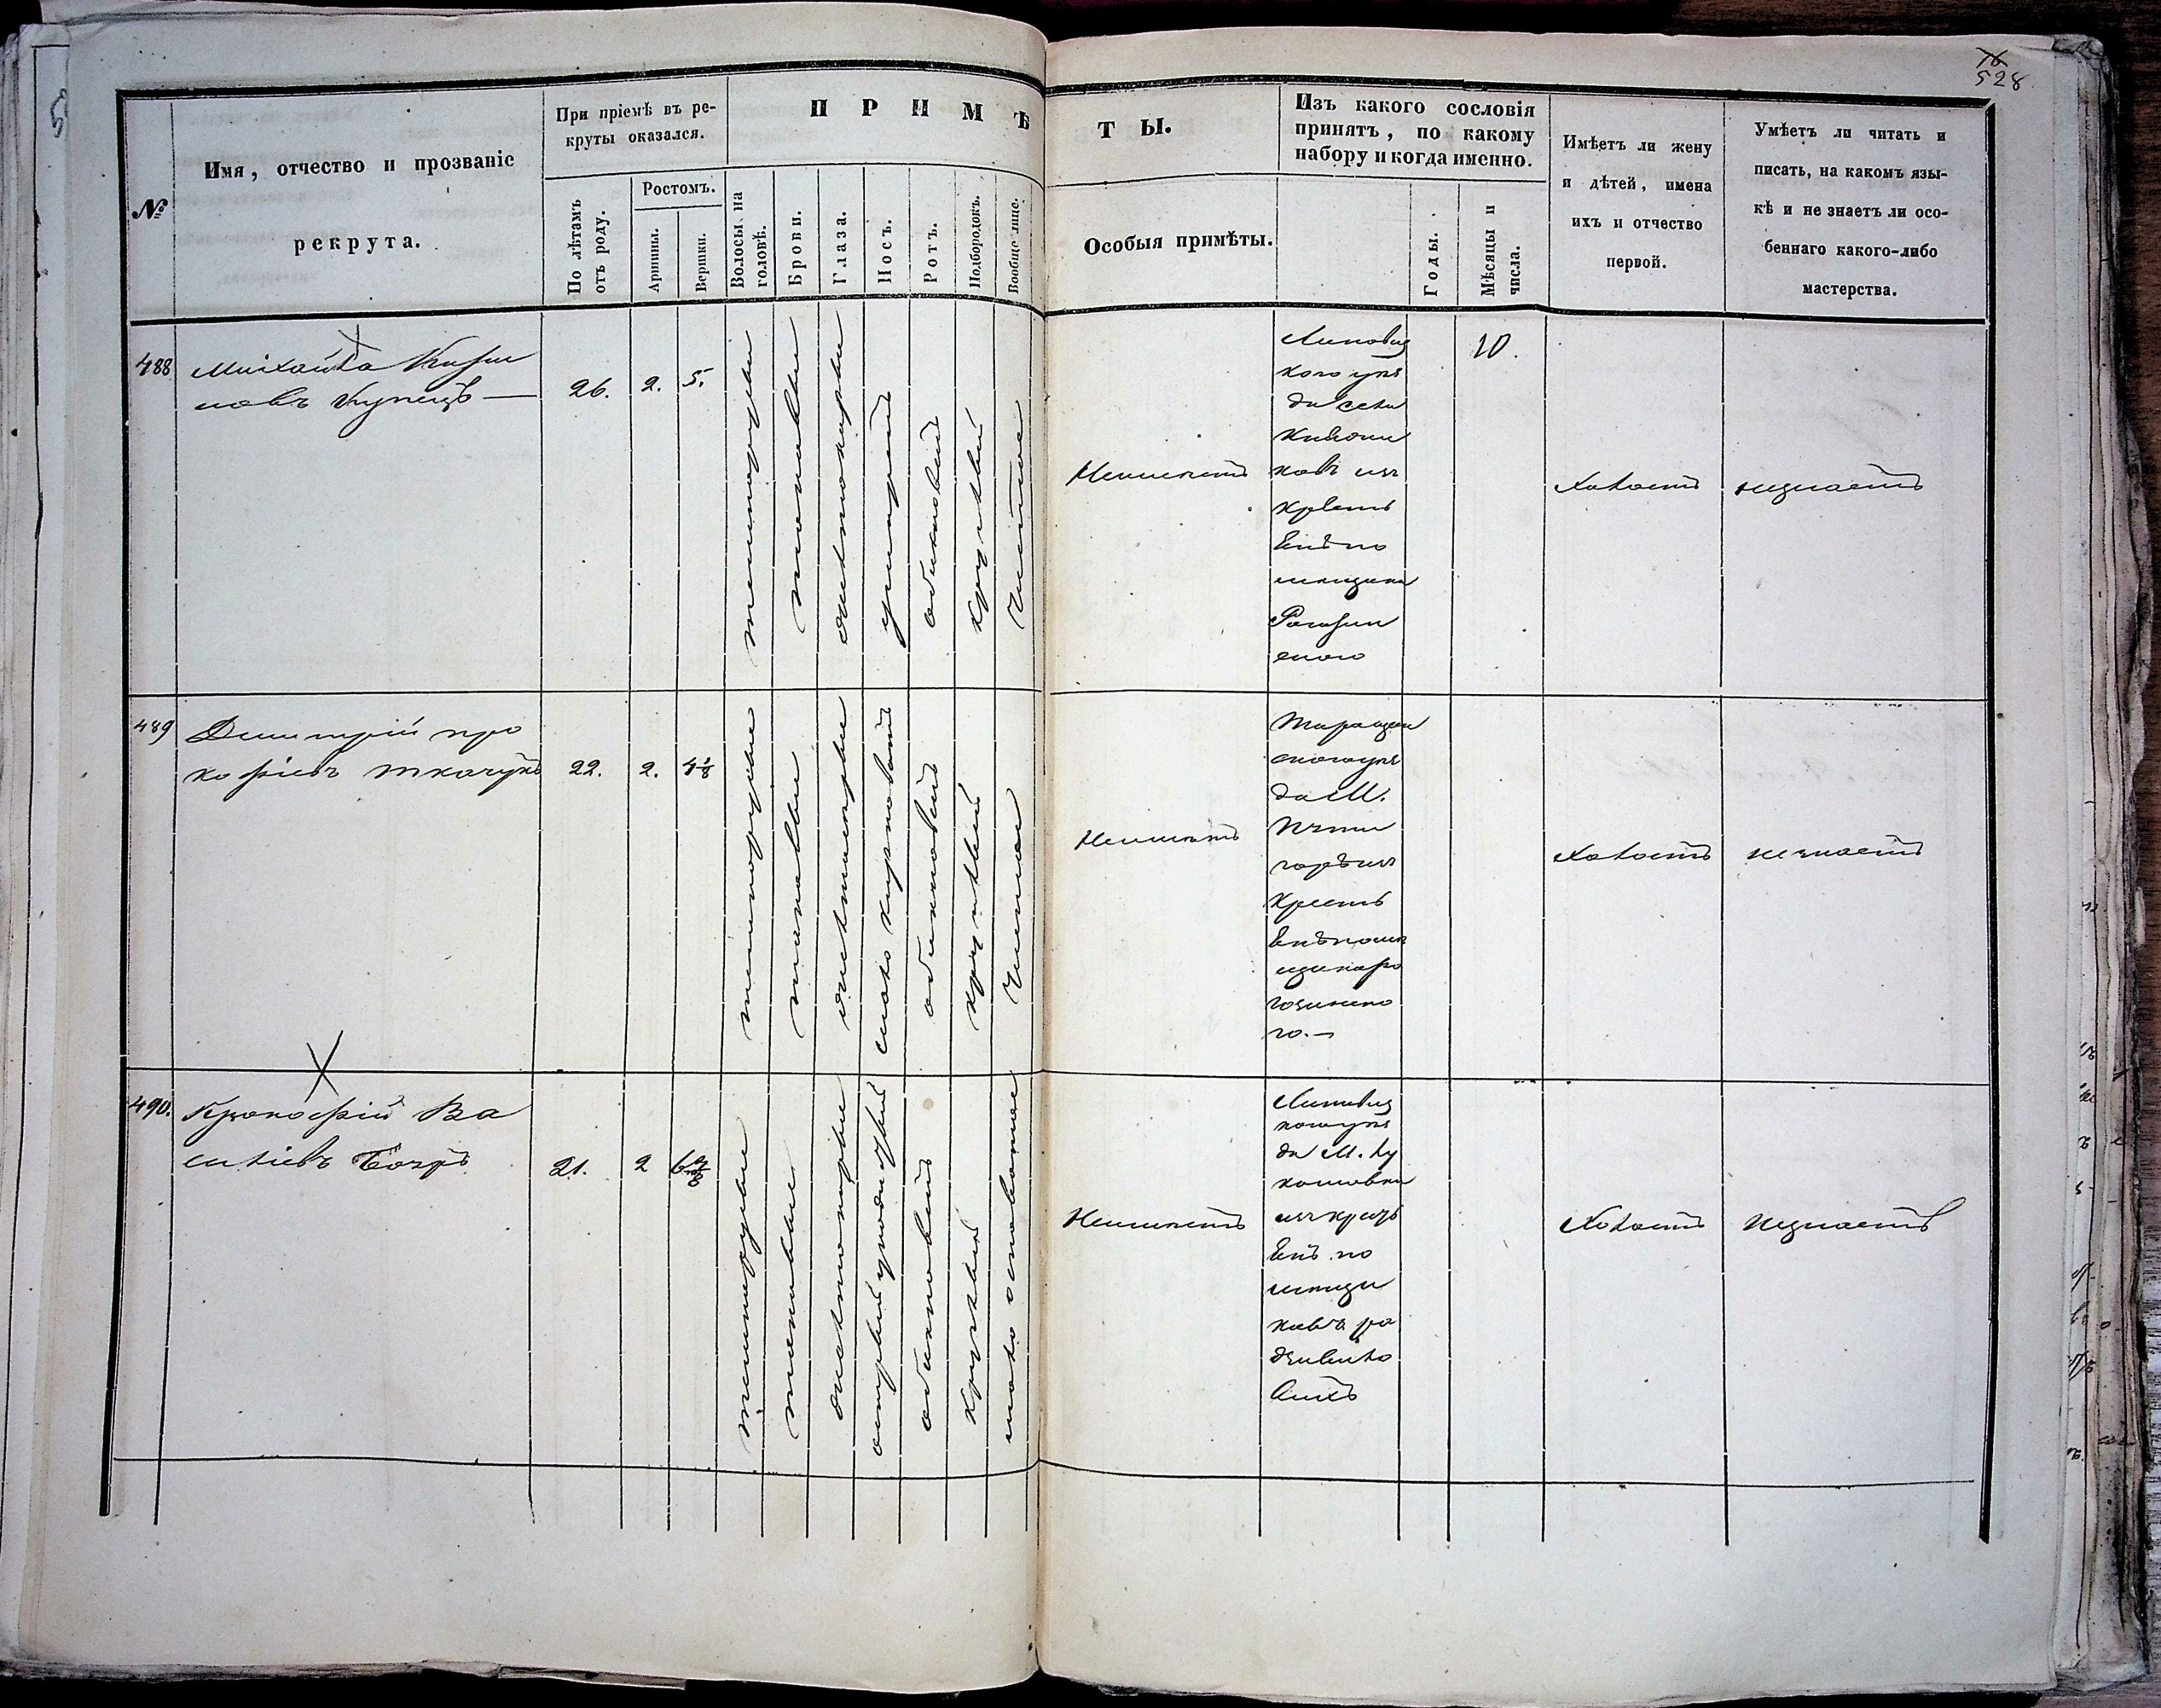 16
528
№
Имя, отчество и прозваніе
рекрута.
При пріемѣ въ ре-
круты оказался.
По лѣтамъ
отъ роду.
Ростомъ.
Аршины.
Вершки.
ПРИМѢ
Волосы на
головѣ.
Брови.
Глаза.
Носъ.
Ротъ.
Подбородокъ.
Вообще лице.
ТЫ.
Особыя примѣты.
Изъ какого сословія
принятъ, по какому
набору и когда именно.
Годы.
Мѣсяцы и
числа.
Имѣетъ ли жену
и дѣтей, имена
ихъ и отчество
первой.
Умѣетъ ли читать и
писать, на какомъ язы-
кѣ и не знаетъ ли осо-
беннаго какого-либо
мастерства.
488
Михайла
новъ Купецъ —
26.
2.
5.
темнорусые
таковые
свѣтлокаріе
умѣренный
обыкновенный
круглый
чистое
Неимѣетъ
Липовец
кого уѣз
да села
ковъ изъ
крестья
енъ по
мѣщика
скаго
10.
Холостъ
незнаетъ
489
Димитрій Про
кофіевъ Ткачукъ
22.
2.
4 1/8
темнорусые
таковые
свѣтлосѣрые
мало курноватъ
обыкновенный
круглый
Чистое
Неимѣетъ
Таращан
скаго уѣз
да М.
Пяти
горъ изъ
крестья
енъ помѣ
щика Ро
го. —
Холостъ
незнаетъ
490.
Прокофій Ва
силіевъ
21.
2
6 2/8
темнорусые
таковые
свѣтлокаріе
острый
обыкновенный
круглый
мало осповатое
Неимѣетъ
Липовец
кого уѣз
да М. Лу
кашовки
изъ крест
енъ по
мѣщи
ковъ Ра
дзивило
выхъ
Холостъ
незнаетъ